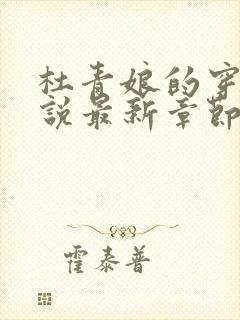 杜青娘的穿
說最新章節
霍泰普